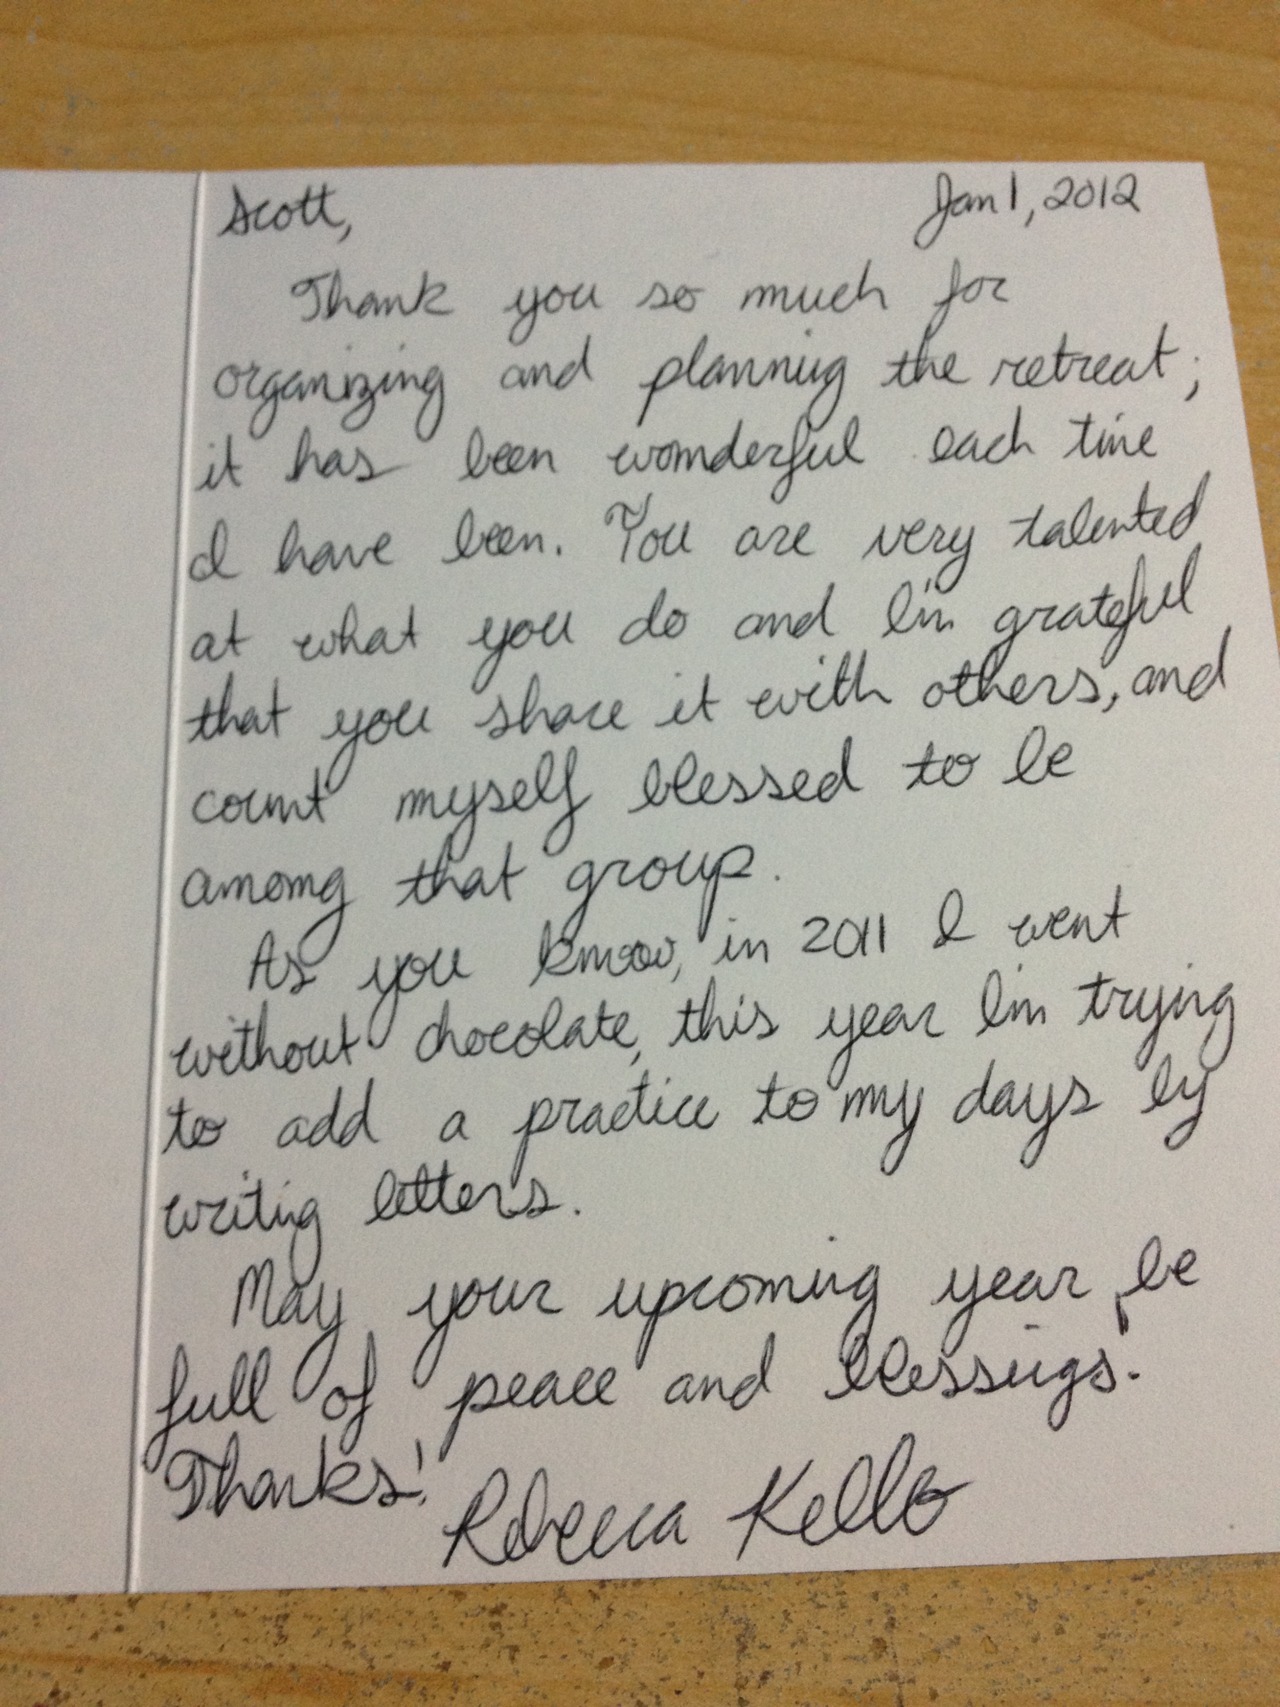 Scott,
Jan 1, 2012
Thank you so much for
organizing and planning the retreat;
it has been wonderful each time
I have been. You are very talented
at what you do and I'm grateful
that you share it with others, and
count myself blessed to be
among that group.
As you know, in 2011 I went
without chocolate, this year I'm trying
to add a practice to my days by
writing letters.
May your upcoming year be
full of peace and blessings.
Thanks!
Rebecca Kello